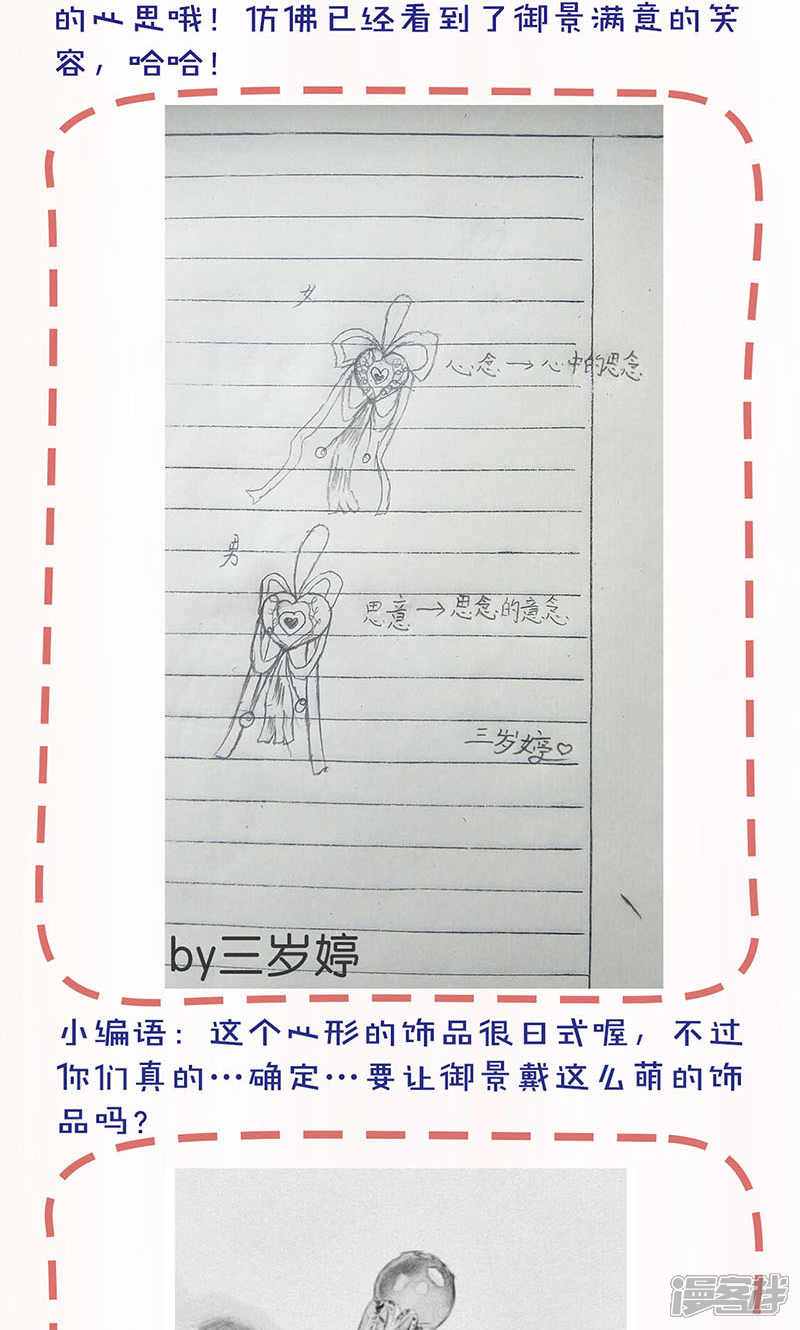 的心思哦！仿佛已经看到了御景满意的笑
容，哈哈！
女
心念→心中的思念
男
思意→思念的意念
三岁婷♡
by三岁婷
小编语：这个心形的饰品很日式喔，不过
你们真的…确定…要让御景戴这么萌的饰
品吗？
漫客栈